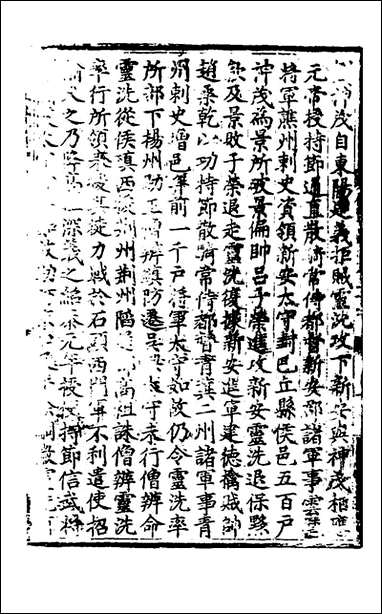 神茂自東陽建義拒賊靈洗攻下新安與神茂相應
元帝授持節通直散騎常侍都督新安郡諸軍事雲麾
將軍譙州刺史資領新安太守封巴丘縣侯邑五百戶
神茂為景所破景偏帥呂子榮進攻新安靈洗退保黟
歙及景敗子榮退走靈洗復據新安進軍建德擒賊帥
趙桑乾以功授持節散騎常侍都督青冀二州諸軍事青
州刺史增邑并前一千戶將軍太守如故仍令靈洗率
所部下揚州助王僧辨鎮防遷吳興太守未行僧辨命
靈洗從侯瑱西援荊州荊州陷還 高祖誅僧辨靈洗
率所領來援其徒力戰於石頭西門軍不利遣使招
諭久之乃降高祖深義之紹泰元年授使持節信武將